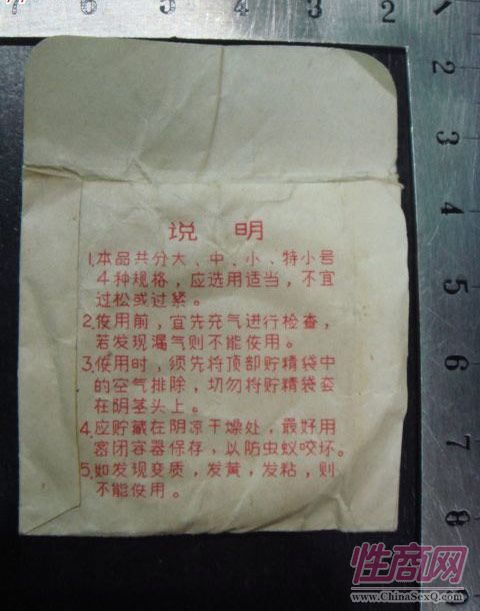 7 6 5 4 3 2
说 明
1.本品共分大、中、小、特小号
4种规格，应选用适当，不宜
过松或过紧。
2.使用前，宜先充气进行检查，
若发现漏气则不能使用。
3.使用时，须先将顶部贮精袋中
的空气排除，切勿将贮精袋套
在阴茎头上。
4.应贮藏在阴凉干燥处，最好用
密闭容器保存，以防虫蚁咬坏。
5.如发现变质，发黄，发粘，则
不能使用。
2
3
4
5
6
7
8
性商网
www.ChinaSexQ.com